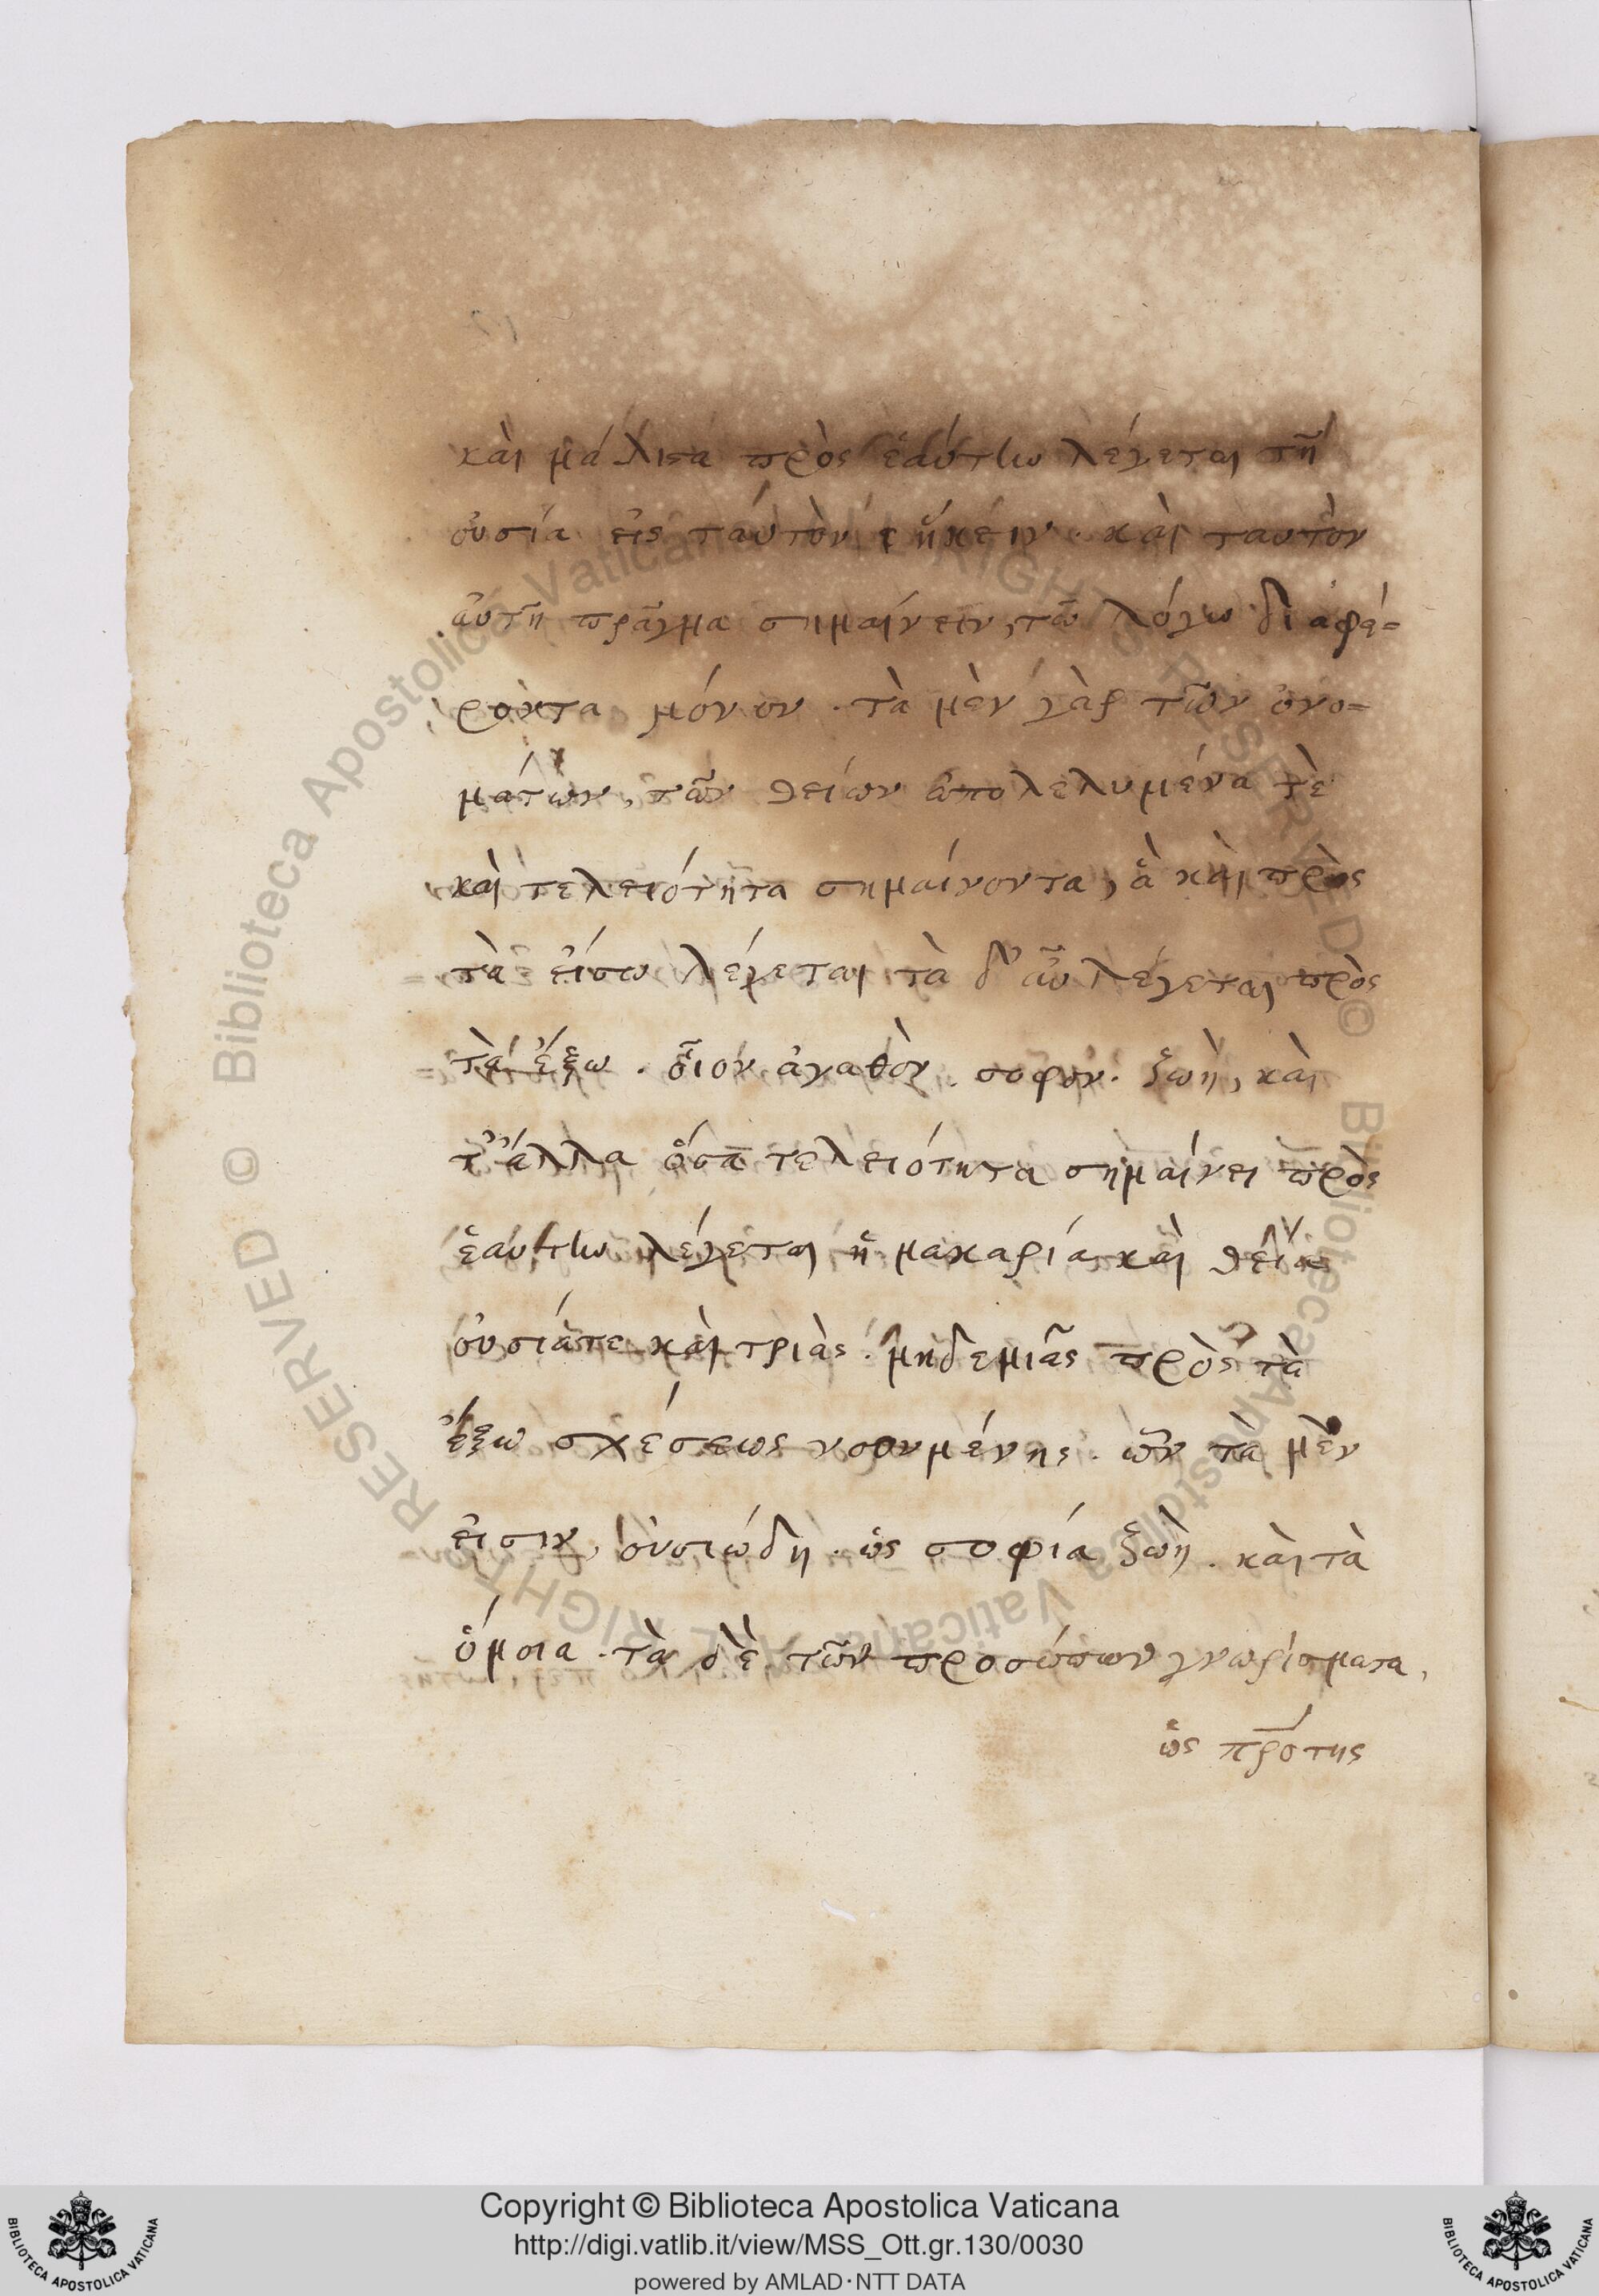 καὶ μάλιστα πρὸς ἑαύτὴν λέγεται τῆ
οὐσία εἰς ταύτὸν ἥκειν. καὶ ταυτὸν
ἀυτῆ πρᾶγμα σημαίνειν, τῶ λόγω διαφέ=
ροντα μόνον. τὰ μὲν γὰρ τῶν ὀνο=
μάτων, τῶν θείων ἀπολελυμένα τὲ
καὶ τελειότητα σημαίνοντα, ἃ καὶ πρὸς
τὰ εἴσω λέγεται τὰ δ' ἆυ λέγεται πρὸς
τὰ ἔξω. οἷον ἀγαθὸν. σοφὸν. ζωὴ, καὶ
τ' ἄλλα ὅσα τελειότητα σημαίνει πρὸς
ἑαυτὴν λέγεται ἡ μακαρία καὶ θεία
οὐσιάτε καὶ τριὰς. μηδεμιᾶς πρὸς τὰ
ἔξω σχέσεως νοουμένης. ὧν τὰ μὲν
εἰσιν, οὐσιώδη. ὡς σοφία ζωὴ. καὶ τὰ
ὅμοια. τὰ δὲ τῶν προσώπων γνωρίσματα,
ὡς πρότης
Copyright © Biblioteca Apostolica Vaticana
http://digi.vatlib.it/view/MSS_Ott.gr.130/0030
powered by AMLAD·NTT DATA
BIBLIOTECA APOSTOLICA VATICANA
BIBLIOTECA APOSTOLICA VATICANA
© Biblioteca Apostolica Vaticana ALL RIGHTS RESERVED
© Biblioteca Apostolica Vaticana ALL RIGHTS RESERVED